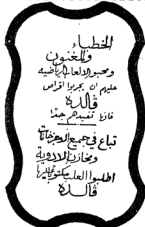 الخطباء
والمغنون
ومحبو الالعاب الرياضية
عليهم ان يجربوا اقراص
ڤالدا
فانها تفيدهم جداً
تباع في جميع الاجزخانات
ومخازن الادوية
اطلبوا العلب مكتوب عليها
ڤالدا